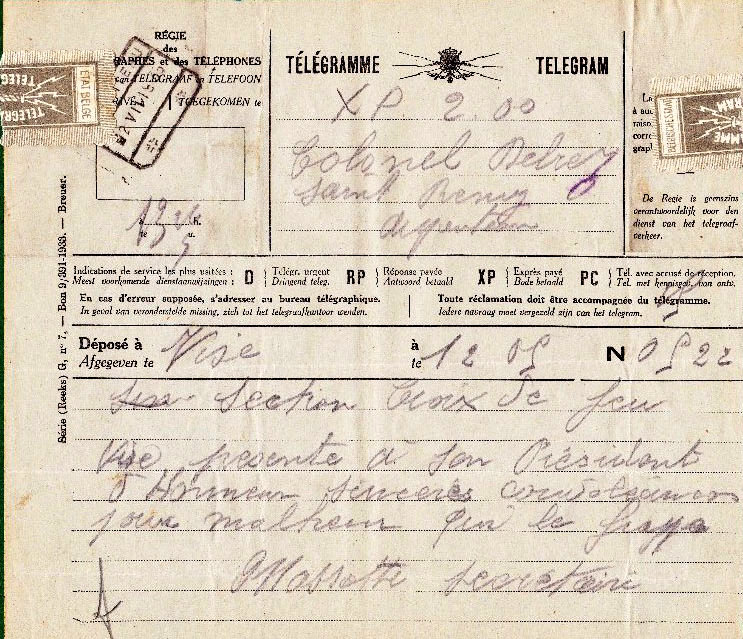 RÉGIE
des
GRAPHES et des TÉLÉPHONES
van TELEGRAAF en TELEFOON
TOEGEKOMEN te
TÉLÉGRAMME TELEGRAM
XP 2 00
Colonel
Saint Remy
à h.
te u.
La
à auc
raiso
corre
graph
De Regie is geenszins
verantwoordelijk voor den
dienst van het telegraaf-
verkeer.
Indications de service les plus usitées : D Télégr. urgent RP Réponse payée XP Exprès payé PC Tél. avec accusé de réception.
Meest voorkomende dienstaanwijzingen : Dringend teleg. Antwoord betaald Bode betaald Tel. met kennisgev. van ontv.
En cas d'erreur supposée, s'adresser au bureau télégraphique.
In geval van veronderstelde missing, zich tot het telegraafkantoor wenden.
Toute réclamation doit être accompagnée du télégramme.
Iedere navraag moet vergezeld zijn van het telegram.
Série (Reeks) G, n° 7, — Bon 9/391-1938. — Breuer.
Déposé à Visé à 12 05 N 0522
Afgegeven te te
Section Croix de feu
Visé presente à son Président
d'Honneur sincères condoléances
pour malheur qui le frappe
secretaire
TELEGRAM